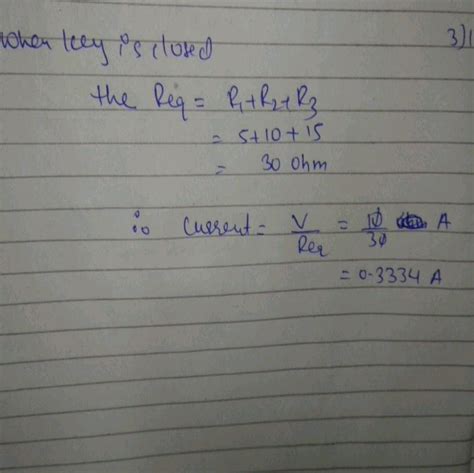 when key is closed
3)1
the Req = R1+R2+R3
= 5+10+15
= 30 ohm
∴ current = V/Req = 10/30 A
= 0.3334 A